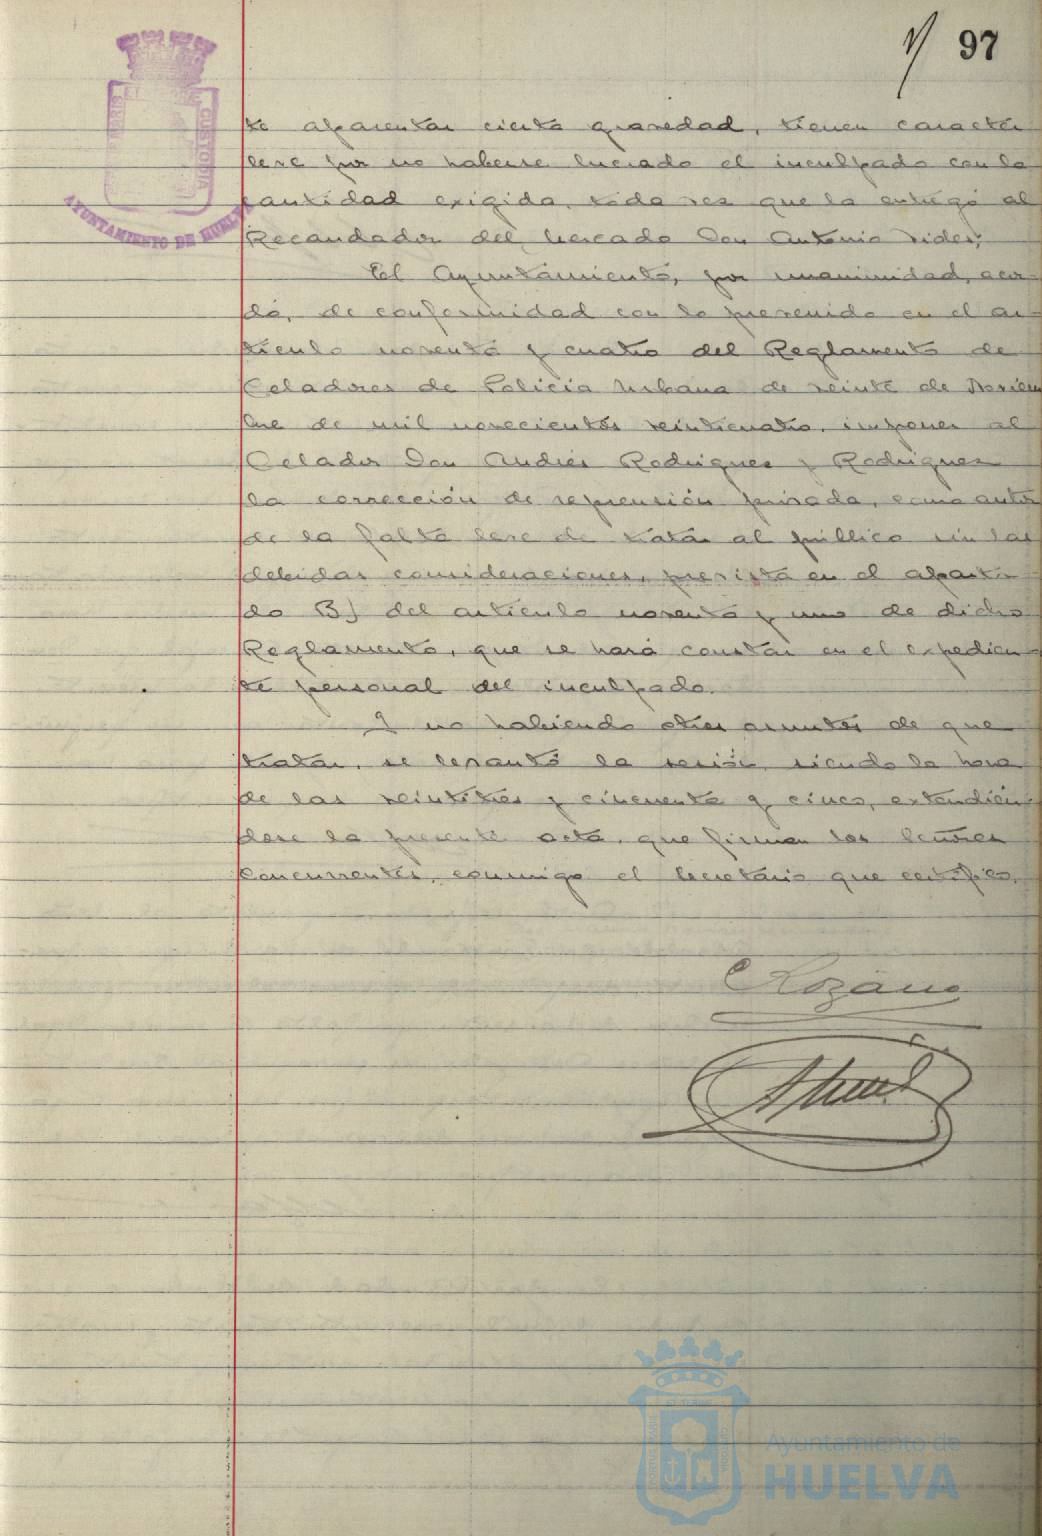 97
te aparentar cierta gravedad, tienen carácter
leve por no haberse lucrado el inculpado con la
cantidad exigida, toda vez que la entregó al
Recaudador del Mercado Don Antonio
El Ayuntamiento, por unanimidad, acor-
dó, de conformidad con lo prevenido en el ar-
tículo noventa y cuatro del Reglamento de
Celadores de Policía Urbana de veinte de Noviem
bre de mil novecientos veinticuatro, imponer al
Celador Don Andrés Rodríguez y Rodríguez
la corrección de reprensión privada, como autor
de la falta leve de tratar al público sin las
debidas consideraciones, prevista en el aparta
do B) del artículo noventa y uno de dicho
Reglamento, que se hará constar en el expedien-
te personal del inculpado.
Y no habiendo otros asuntos de que
tratar, se levantó la sesión, siendo la hora
de las veintitrés y cincuenta y cinco, extendién-
dose la presente acta, que firman los Señores
Concurrentes, conmigo el Secretario que certifico.
Lozano
PORTUS MARIS ET TERRAE CUSTODIA
AYUNTAMIENTO DE HUELVA
Ayuntamiento de
HUELVA